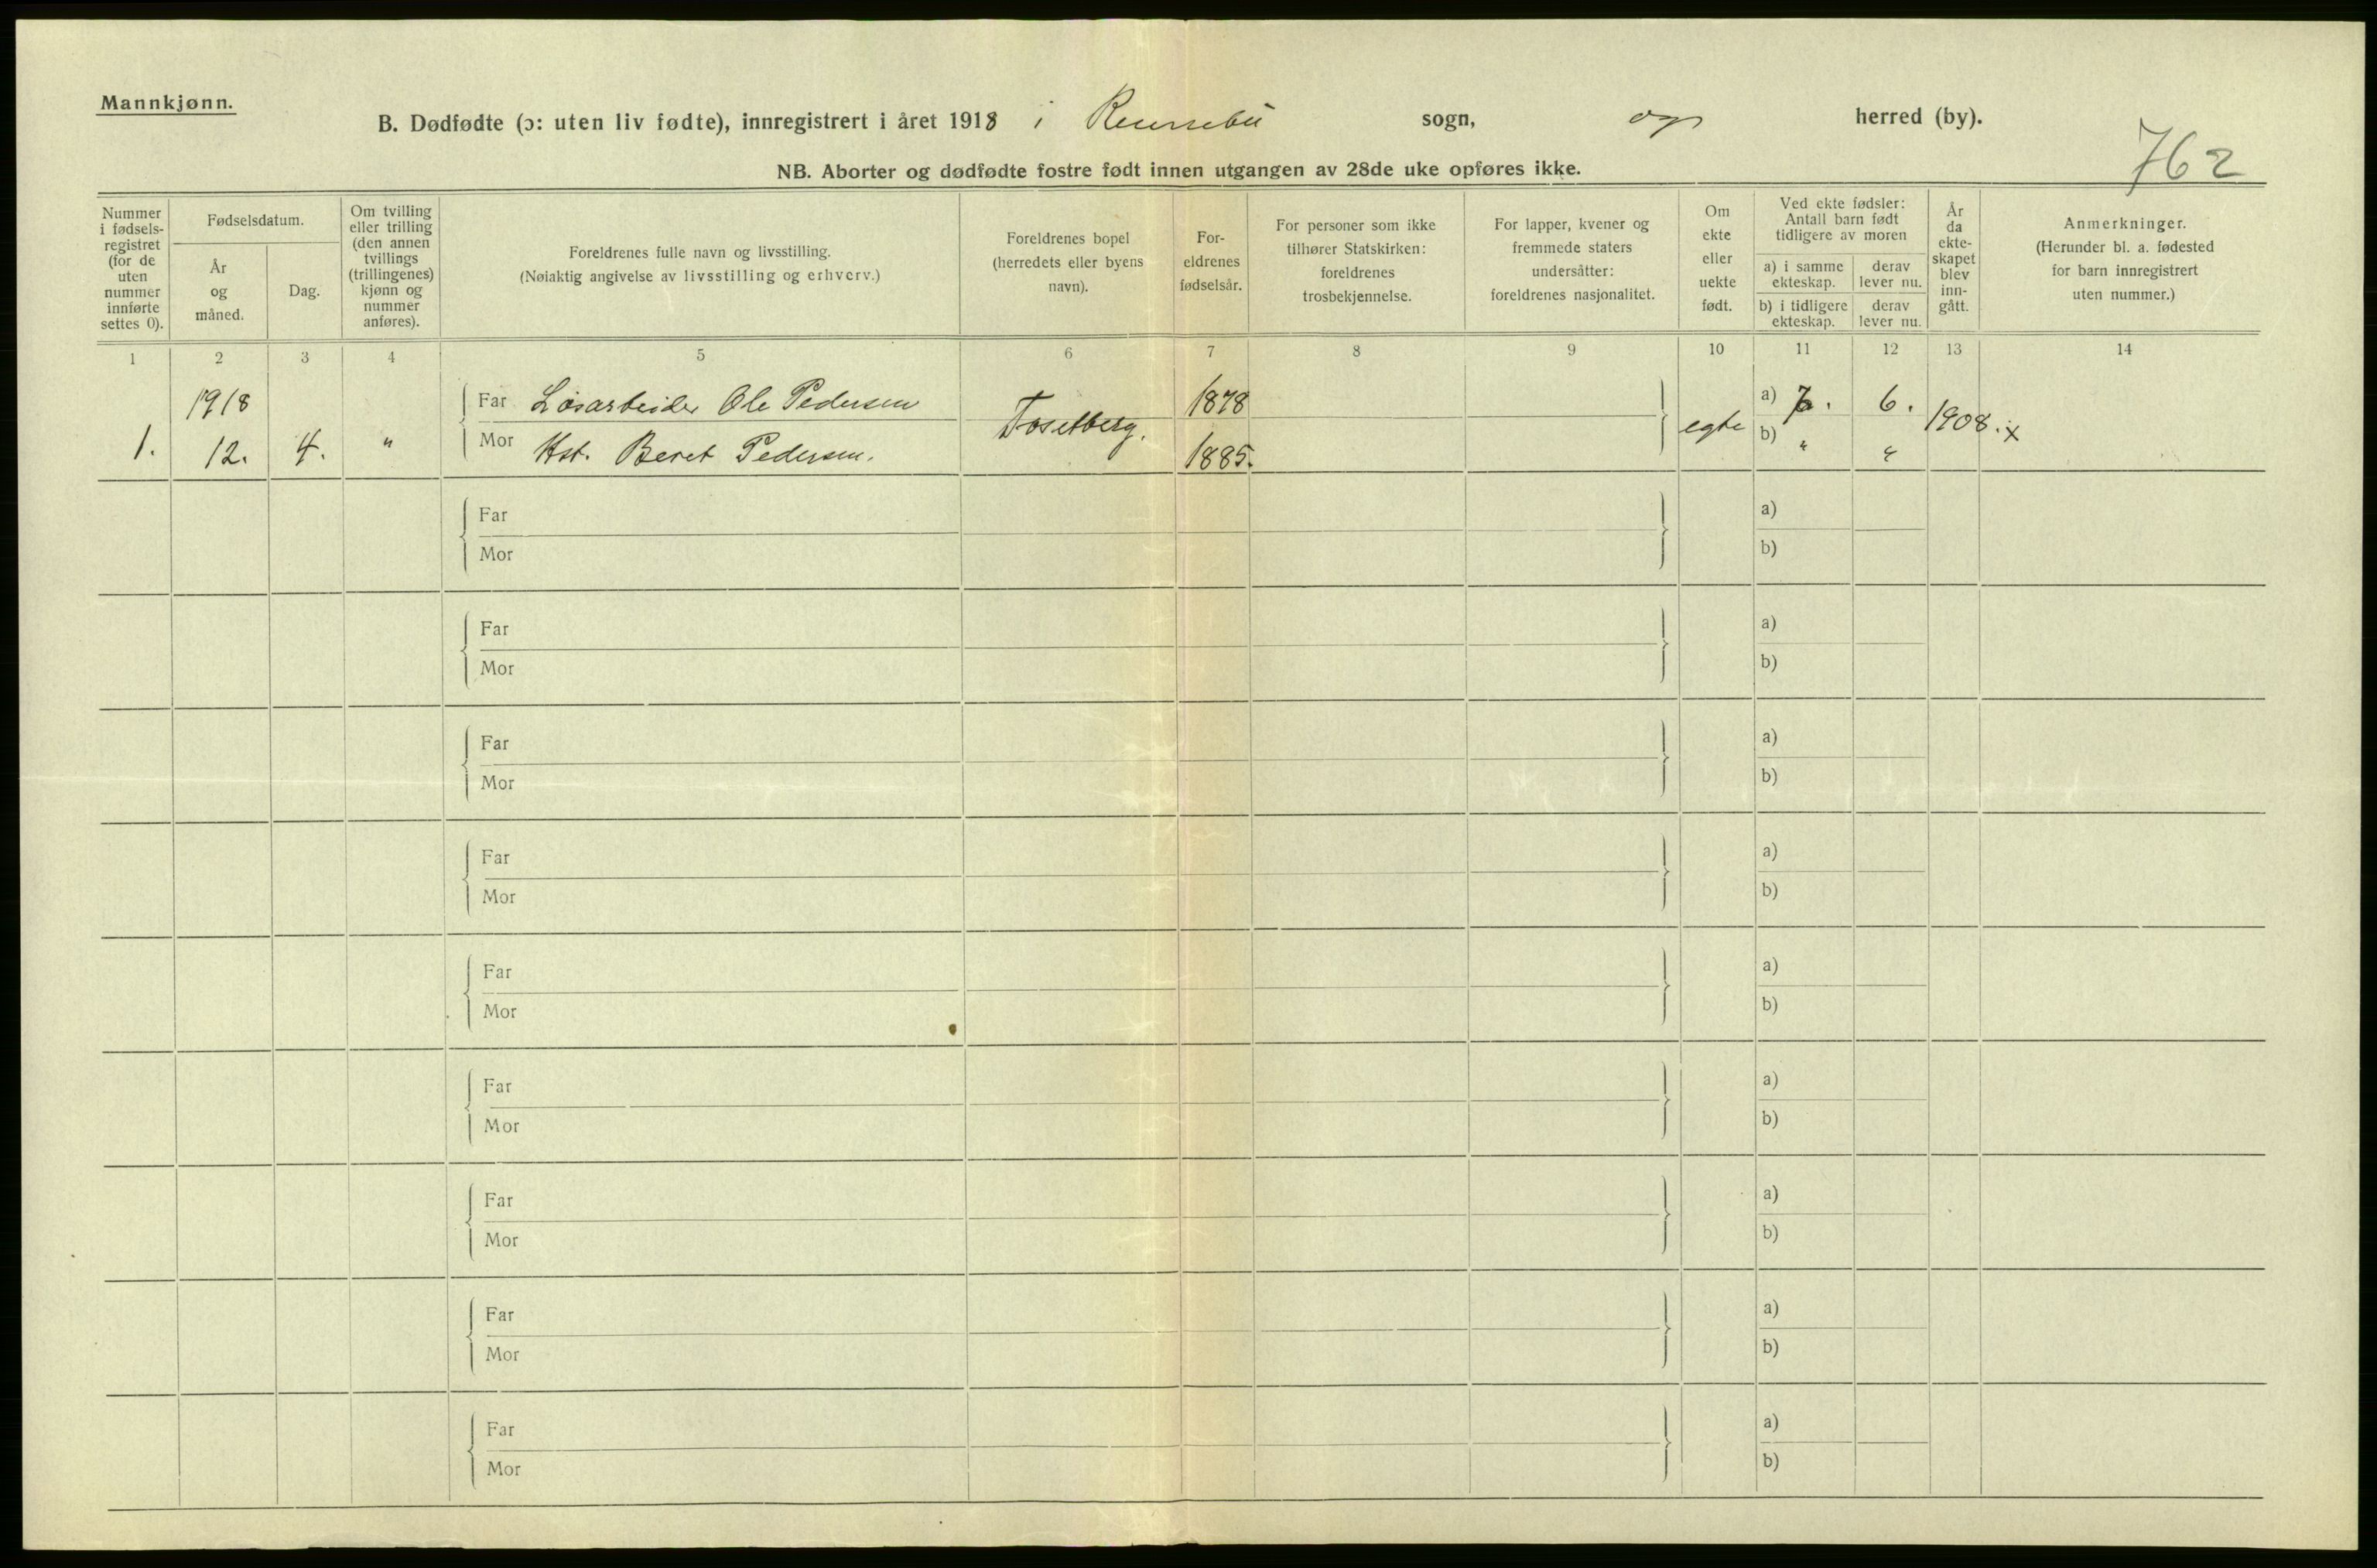 Mannkjønn.
B. Dødfødte (ɔ: uten liv fødte), innregistrert i året 1918 i Rennebu sogn, og herred (by).
762
NB. Aborter og dødfødte fostre født innen utgangen av 28de uke opføres ikke.
Nummer i fødsels-registret (for de uten nummer innførte settes 0).
Fødselsdatum.
År og måned.
Dag.
Om tvilling eller trilling (den annen tvillings (trillingenes) kjønn og nummer anføres).
Foreldrenes fulle navn og livsstilling.
(Nøiaktig angivelse av livsstilling og erhverv.)
Foreldrenes bopel (herredets eller byens navn).
For-eldrenes fødselsår.
For personer som ikke tilhører Statskirken: foreldrenes trosbekjennelse.
For lapper, kvener og fremmede staters undersåtter: foreldrenes nasjonalitet.
Om ekte eller uekte født.
Ved ekte fødsler: Antall barn født tidligere av moren
a) i samme ekteskap.
derav lever nu.
b) i tidligere ekteskap.
derav lever nu.
År da ekte-skapet blev inn-gått.
Anmerkninger.
(Herunder bl. a. fødested for barn innregistrert uten nummer.)
1 2 3 4 5 6 7 8 9 10 11 12 13 14
1918 Far Løsarbeider Ole Pedersen 1878 a) 7. 6.
1. 12. 4. " Mor Hst. Beret Pedersen. Fosetberg. 1885. egte b) " " 1908. x
Far a)
Mor b)
Far a)
Mor b)
Far a)
Mor b)
Far a)
Mor b)
Far a)
Mor b)
Far a)
Mor b)
Far a)
Mor b)
Far a)
Mor b)
Far a)
Mor b)